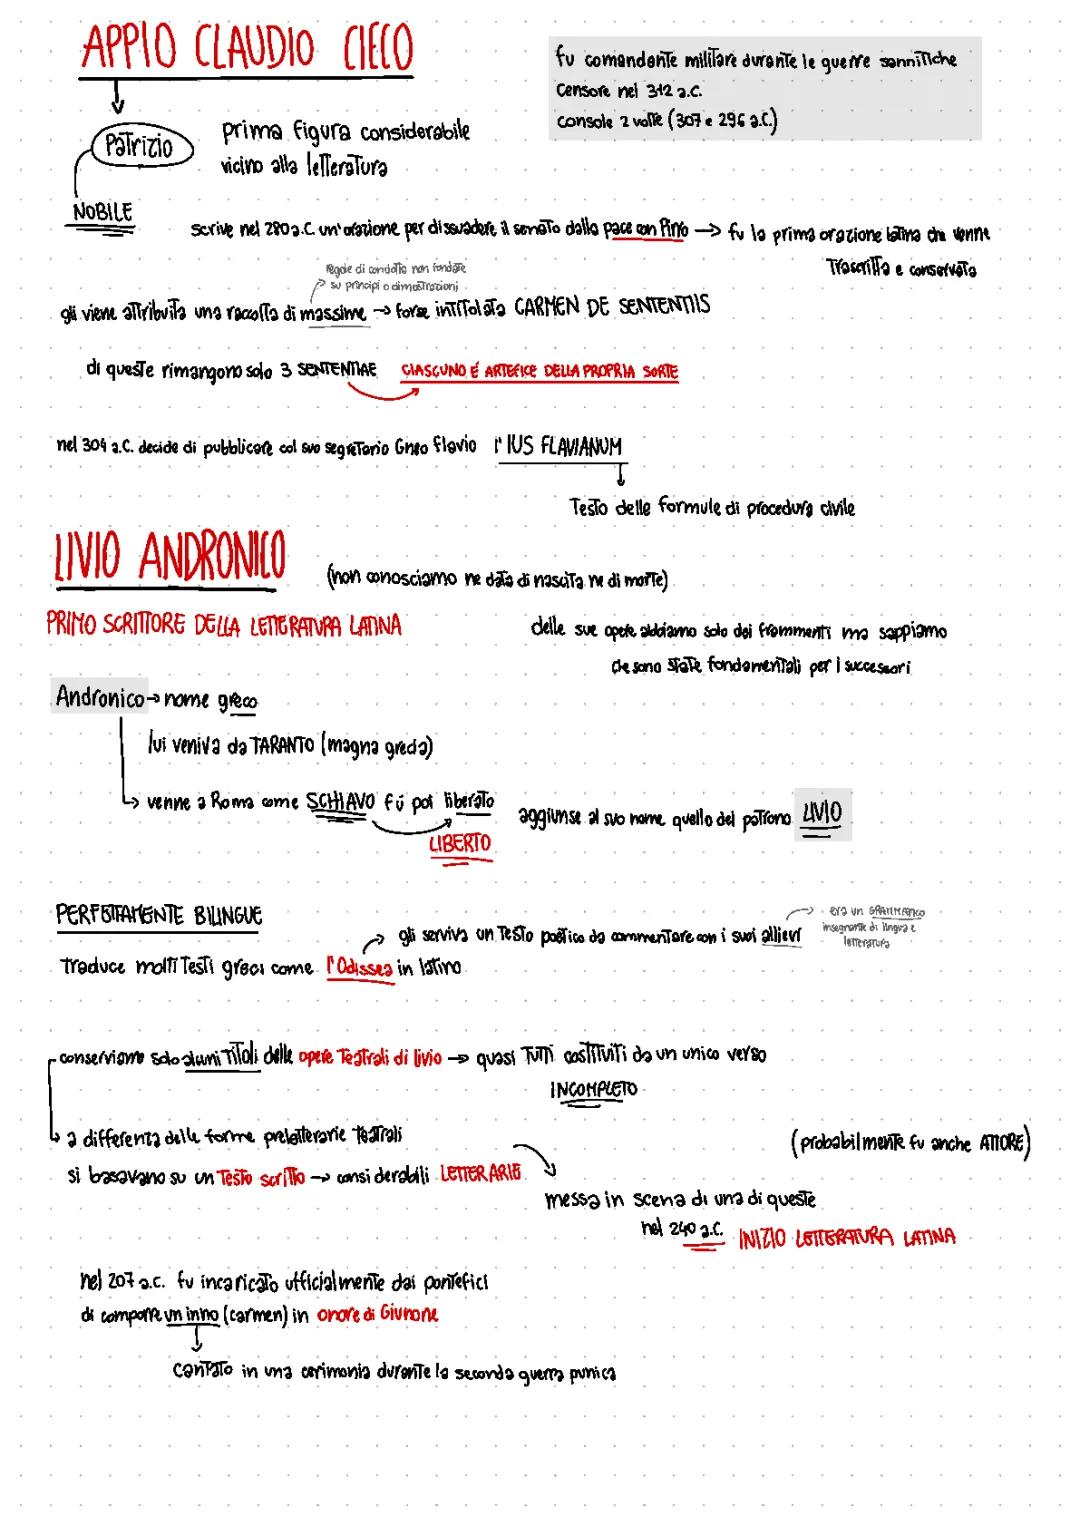 APPIO CLAUDIO CIECO
fu comandante militare durante le guerre sannitiche
censore nel 312 a.C.
console 2 volte (307 e 296 a.C.)
Patrizio
prima figura considerabile
vicino alla letteratura
NOBILE
scrive nel 280 a.C. un'orazione per dissuadere il senato dalla pace con Pirro → fu la prima orazione latina che venne
trascritta e conservata
regole di condotta non fondate
su principi o dimostrazioni
gli viene attribuita una raccolta di massime → forse intitolata CARMEN DE SENTENTIIS
di queste rimangono solo 3 SENTENTIAE CIASCUNO É ARTEFICE DELLA PROPRIA SORTE
nel 304 a.C. decide di pubblicare col suo segretario Gneo Flavio l'IUS FLAVIANUM
Testo delle formule di procedura civile
LIVIO ANDRONICO
(non conosciamo ne data di nascita ne di morte)
PRIMO SCRITTORE DELLA LETTERATURA LATINA
delle sue opere abbiamo solo dei frammenti ma sappiamo
che sono state fondamentali per i successori
Andronico → nome greco
lui veniva da TARANTO (magna grecia)
venne a Roma come SCHIAVO fú poi liberato
aggiunse al suo nome quello del patrono LIVIO
LIBERTO
PERFETTAMENTE BILINGUE
era un GRAMMATICO
insegnante di lingua e
letteratura
gli serviva un testo poetico da commentare con i suoi allievi
traduce molti testi greci come l'Odissea in latino
conserviamo solo alcuni titoli delle opere teatrali di livio → quasi tutti costituiti da un unico verso
INCOMPLETO
a differenza delle forme preletterarie teatrali
(probabilmente fu anche ATTORE)
si basavano su un testo scritto → considerabili LETTERARIE
messa in scena di una di queste
nel 240 a.C. INIZIO LETTERATURA LATINA
nel 207 a.c. fu incaricato ufficialmente dai pontefici
di comporre un inno (carmen) in onore di Giunone
cantato in una cerimonia durante la seconda guerra punica